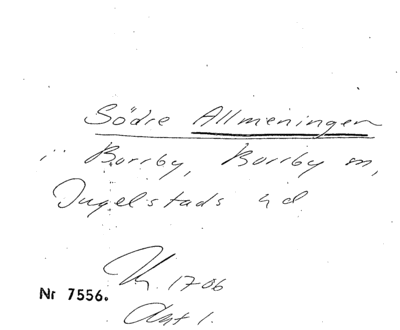 Södre Allmeningen
i Borrby, Borrby sn,
Ingelstads hd
1706
Nr 7556.
Ant 1.